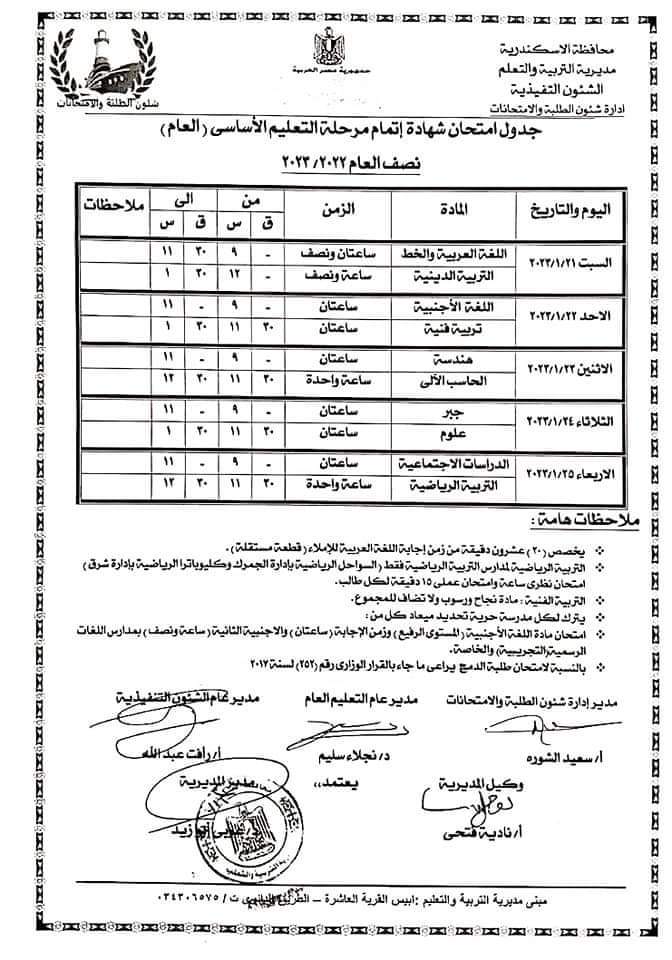 محافظة الاسكندرية
مديرية التربية والتعلم
الشئون التنفيذية
ادارة شئون الطلبة والامتحانات
جمهورية مصر العربية
شئون الطلبة والامتحانات
جدول امتحان شهادة إتمام مرحلة التعليم الأساسى (العام)
نصف العام ٢٠٢٣/٢٠٢٢
اليوم والتاريخ المادة الزمن من الى ملاحظات
ق س ق س
السبت ٢٠٢٣/١/٢١ اللغة العربية والخط ساعتان ونصف - ٩ ٣٠ ١١
التربية الدينية ساعة ونصف - ١٢ ٣٠ ١
الاحد ٢٠٢٣/١/٢٢ اللغة الأجنبية ساعتان - ٩ - ١١
تربية فنية ساعتان ٣٠ ١١ ٣٠ ١
الاثنين ٢٠٢٣/١/٢٣ هندسة ساعتان - ٩ - ١١
الحاسب الآلى ساعة واحدة ٣٠ ١١ ٣٠ ١٢
الثلاثاء ٢٠٢٣/١/٢٤ جبر ساعتان - ٩ - ١١
علوم ساعتان ٣٠ ١١ ٣٠ ١
الاربعاء ٢٠٢٣/١/٢٥ الدراسات الاجتماعية ساعتان - ٩ - ١١
التربية الرياضية ساعة واحدة ٣٠ ١١ ٣٠ ١٢
ملاحظات هامة :
❖ يخصص (٢٠) عشرون دقيقة من زمن إجابة اللغة العربية للإملاء (قطعة مستقلة).
❖ التربية الرياضية لمدارس التربية الرياضية فقط (السواحل الرياضية بإدارة الجمرك وكليوباترا الرياضية بإدارة شرق)
امتحان نظرى ساعة وامتحان عملى ١٥ دقيقة لكل طالب.
❖ التربية الفنية : مادة نجاح ورسوب ولا تضاف للمجموع.
❖ يترك لكل مدرسة حرية تحديد ميعاد كل من :
❖ امتحان مادة اللغة الأجنبية (المستوى الرفيع) وزمن الإجابة (ساعتان) والاجنبية الثانية (ساعة ونصف) بمدارس اللغات
الرسمية (التجريبية) والخاصة.
❖ بالنسبة لامتحان طلبة الدمج يراعى ما جاء بالقرار الوزارى رقم (٢٥٢) لسنة ٢٠١٧
مدير إدارة شئون الطلبة والامتحانات مدير عام التعليم العام مدير عام الشئون التنفيذية
أ/ سعيد الشوره د/ نجلاء سليم أ/ رأفت عبد الله
وكيل المديرية يعتمد،، مدير المديرية
أ/ نادية فتحى د/ عربى أبو زيد
مبنى مديرية التربية والتعليم : أبيس القرية العاشرة – الطريق ت / ٠٣٤٣٠٦٥٧٥